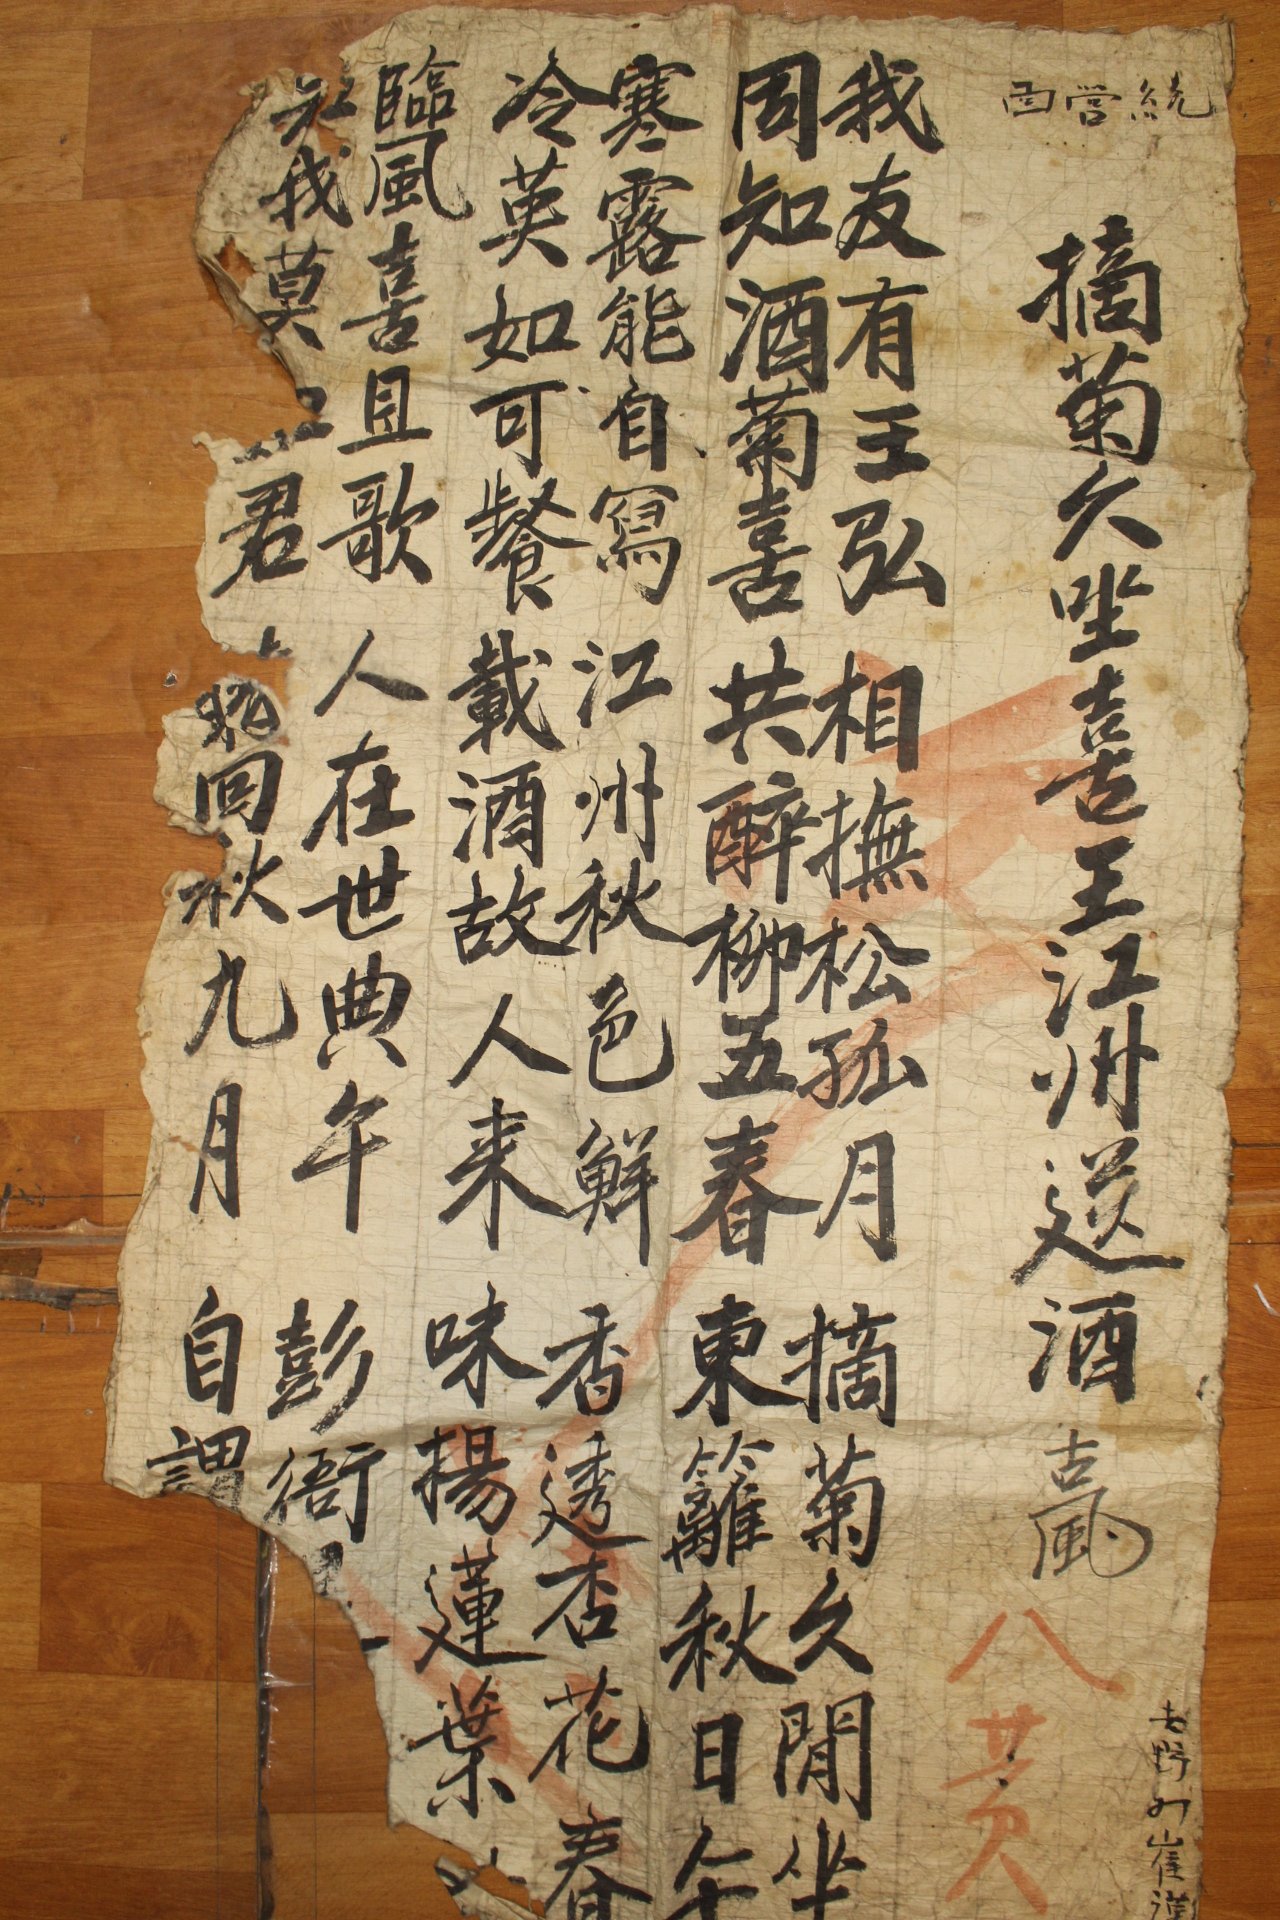 統營面
摘菊久坐喜王江州送酒 古風
我友有王弘 相撫松孤月 摘菊久閒坐
固知酒菊喜 共醉柳五春 東籬秋日午
寒露能自寫 江州秋色鮮 香透杏花春
冷英如可餐 載酒故人来 味揚蓮葉
臨風喜且歌 人在世典午 彭衙
我莫 君 回秋九月 自謂
八 
崔